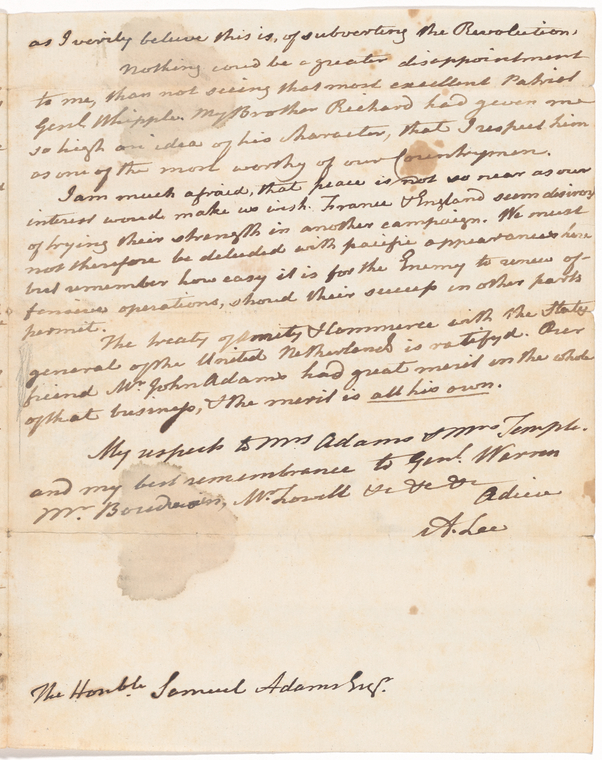 as I verily believe this is, of subverting the Revolution,
Nothing could be a greater disappointment
to me, than not seeing that most excellent Patriot
Genl. Whipple. My Brother Richard had given me
so high an idea of his character, that I respect him
as one of the most worthy of our Countrymen.
I am much afraid, that peace is not so near as our
interest would make us wish. France & England seem desirous
of trying their strength in another campaign. We must
not therefore be deluded with pacific appearances here
but remember how easy it is for the Enemy to renew of-
fensive operations, shoud their success in other parts
permit.
The treaty of amity & Commerce with the States
general of the United Netherlands is ratifyd. Our
friend Mr. John Adams had great merit in the whole
of that business, & the merit is all his own.
My respects to Mrs Adams & Mrs Temple.
and my best remembrance to Genl. Warren
Mr. Bowdoin, Mr. Lovell &c &c &c
Adieu
A. Lee
The Honble. Samuel Adams Esqr.